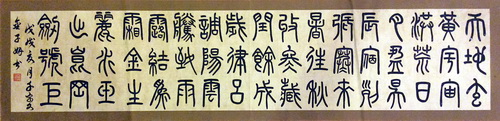 天地玄
黃宇宙
洪荒日
月盈昃
辰宿列
張寒來
暑往秋
收冬藏
閏餘成
歲律呂
調陽雲
騰致雨
露結為
霜金生
麗水玉
出崑岡
劍號巨
戊戌夏月
書